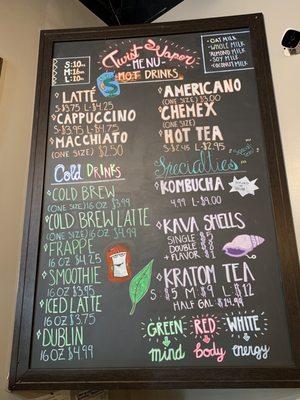 Twist & Vapor
MENU
HOT DRINKS
S: 10oz
M: 16oz
OAT MILK
WHOLE MILK
ALMOND MILK
SOY MILK
COCONUT MILK
LATTÉ
S-$3.75 L-$4.25
CAPPUCCINO
S-$3.95 L-$4.75
MACCHIATO
(ONE SIZE) $2.50
AMERICANO
(ONE SIZE) $3.00
CHEMEX
(ONE SIZE)
HOT TEA
S-$2.45 L-$2.95
COLD DRINKS
COLD BREW
(ONE SIZE) 16 OZ $3.99
COLD BREW LATTE
(ONE SIZE) 16 OZ $3.99
FRAPPE
16 OZ $4.25
SMOOTHIE
16 OZ $3.95
ICED LATTE
16 OZ $3.75
DUBLIN
16 OZ $4.99
Specialties
KOMBUCHA
4.99 L-$9.00
KAVA SHELLS
SINGLE $5
DOUBLE
+ FLAVOR
KRATOM TEA
S $5 M $9 L $12
HALF GAL $24.99
GREEN
mind
RED
body
WHITE
energy